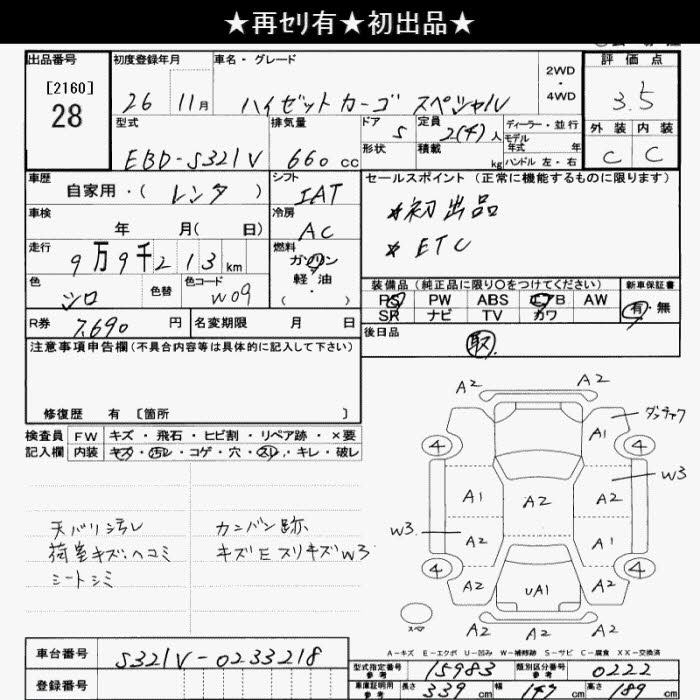 ★再セリ有★初出品★
出品番号 初度登録年月 車名・グレード 2WD・4WD 評価点
[2160] 28 26 11月 ハイゼットカーゴ スペシャル 3.5
型式 排気量 ドア 5 定員 2(4)人 ディーラー・並行 外装 内装
EBD-S321V 660cc 形状 積載 kg モデル年式 年式 ハンドル 左・右 C C
車歴 自家用・(レンタ) シフト IAT セールスポイント(正常に機能するものに限ります)
車検 年 月(日) 冷房 AC *初出品
走行 9万9千213km 燃料 ガソリン *ETC
軽・油
色 シロ 色替 色コード W09 ・( ) 装備品(純正品に限り○をつけてください) 新車保証書
PS PW ABS AW 有・無
R券 7,690円 名変期限 月 日 SR ナビ TV カワ
注意事項申告欄(不具合内容等は具体的に記入して下さい) 後日品 取
修復歴 有 [箇所 ]
検査員 FW キズ・飛石・ヒビ割・リペア跡・×要
記入欄 内装 キズ・汚レ・コゲ・穴・スレ・キレ・破レ
天バリ汚レ カンバン跡
荷室キズ、ヘコミ キズEスリキズW3
シートシミ
A2 A2
4 A1 4
A1 A2 A2 W3
W3 A2 A1
4 A2 UA1 A2 4
スペア A2 A2
A-キズ E-エクボ U-凹み W-補修跡 S-サビ C-腐食 XX-交換済
車台番号 S321V-0233218 型式指定番号 参考 15983 類別区分番号 参考 0222
登録番号 車庫証明用 参考 長さ 339cm 幅 147cm 高さ 189cm